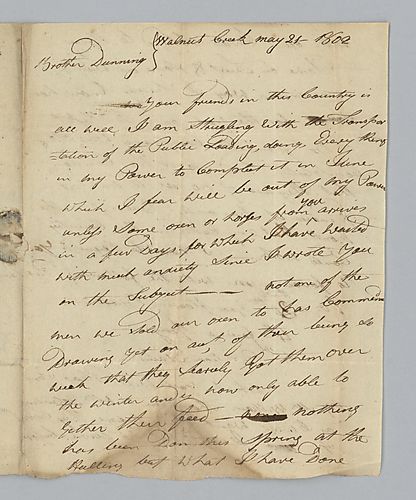 Walnut Creek may 21 - 1802
Brother Dunning
Your friends in this Country is
all well I am Strugling With the Transpor
-tation of the Public Loading, doing Every thing
in my Power to Compleat it in June
Which I fear will be out of my Power
unless Some oxen or horses from you arives
in a few Days for which I have Waited
with much anxiety Since I wrote You
on the Subject — not one of the
men we Sold our oxen to has Commencd
Drawing yet on acct of their being So
weak that they Scarsely Got them over
the winter and now only able to
Gether their feed — nothing
has been Don this Spring at the
Hulling but what I have Done